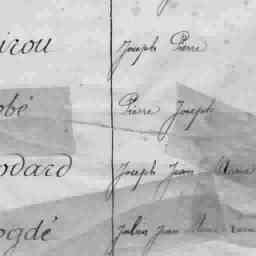 irou Joseph Pierre
obé Pierre Joseph
odard Joseph Jean Marie
ogdé Julien Jean Marie